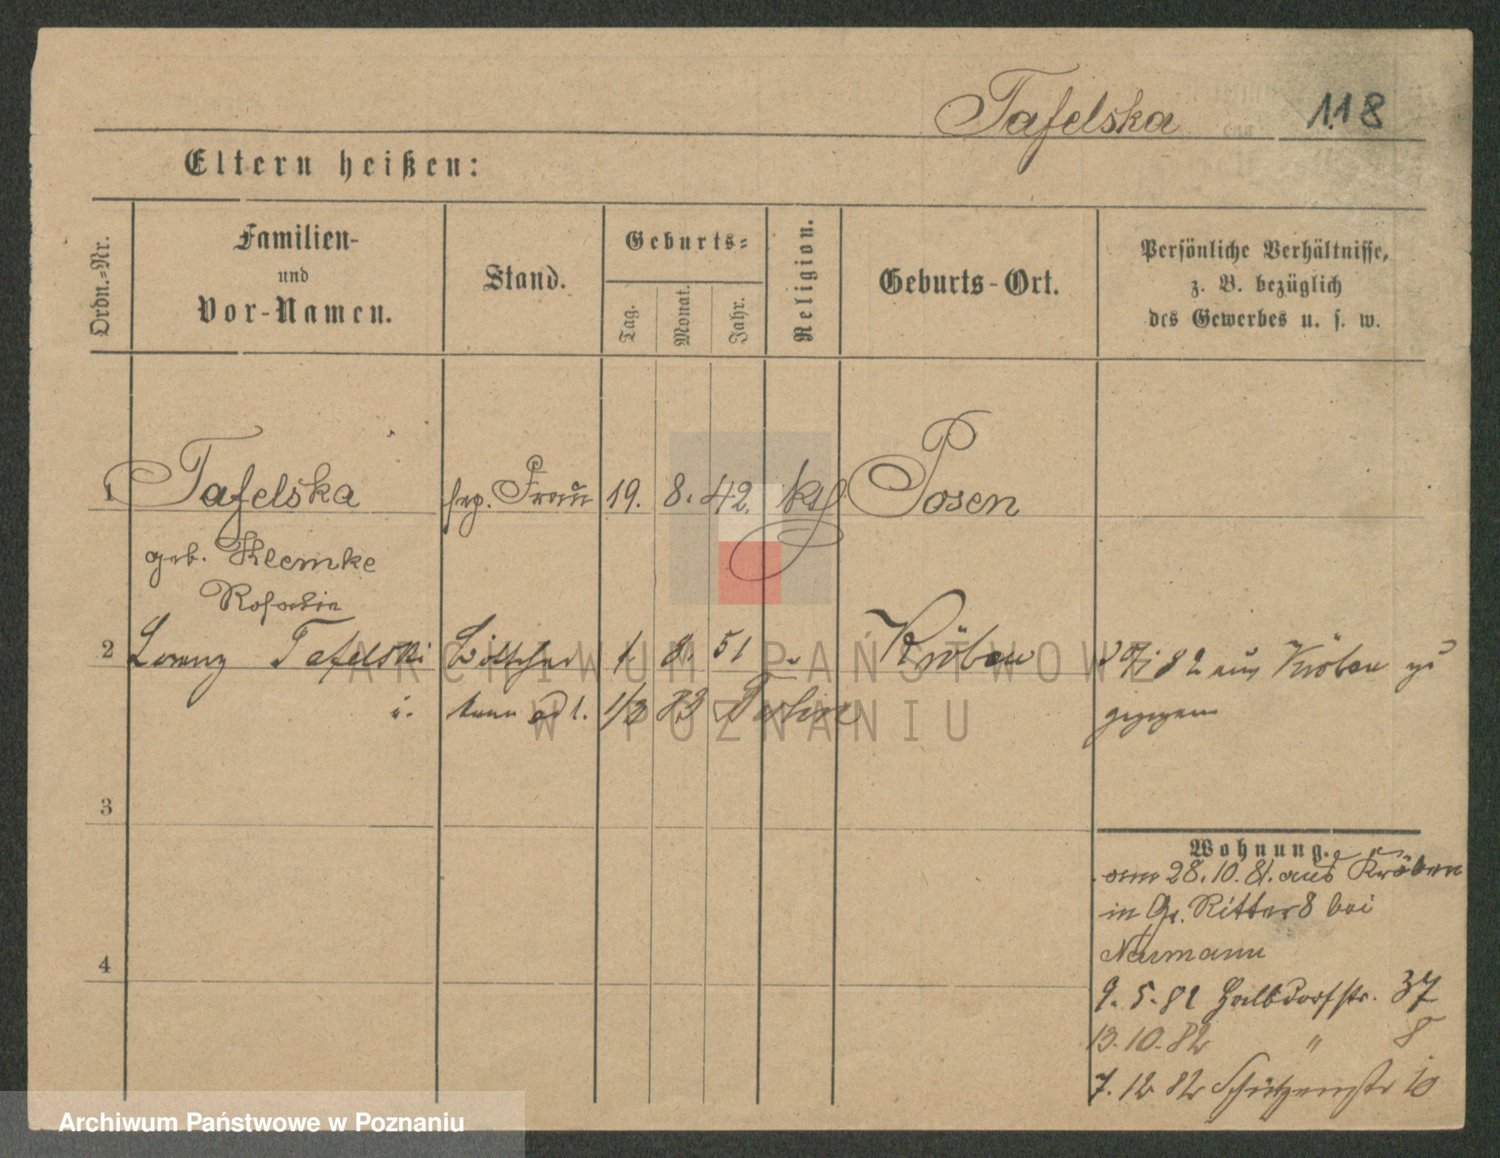 Tafelska 118
Eltern heißen:
Ordn.=Nr.
Familien-
und
Vor-Namen.
Stand.
Geburts=
Tag.
Monat.
Jahr.
Religion.
Geburts-Ort.
Persönliche Verhältnisse,
z. B. bezüglich
des Gewerbes u. s. w.
1 Tafelska sep. Frau 19. 8. 42. kth Posen
geb. Klemke
Rosalie
2 Lorenz Tafelski 1. 8. 51 " Kröben 82 aus Kröben zu
gezogen
3
4
Wohnung.
am 28.10.81. aus Kröben
in Gr. Ritter 8 bei
Naumann
9. 5. 82 Halbdorfstr. 37
13. 10. 82 " 8
7. 12 82 Schützenstr 10
ARCHIWUM PAŃSTWOWE
W POZNANIU
Archiwum Państwowe w Poznaniu